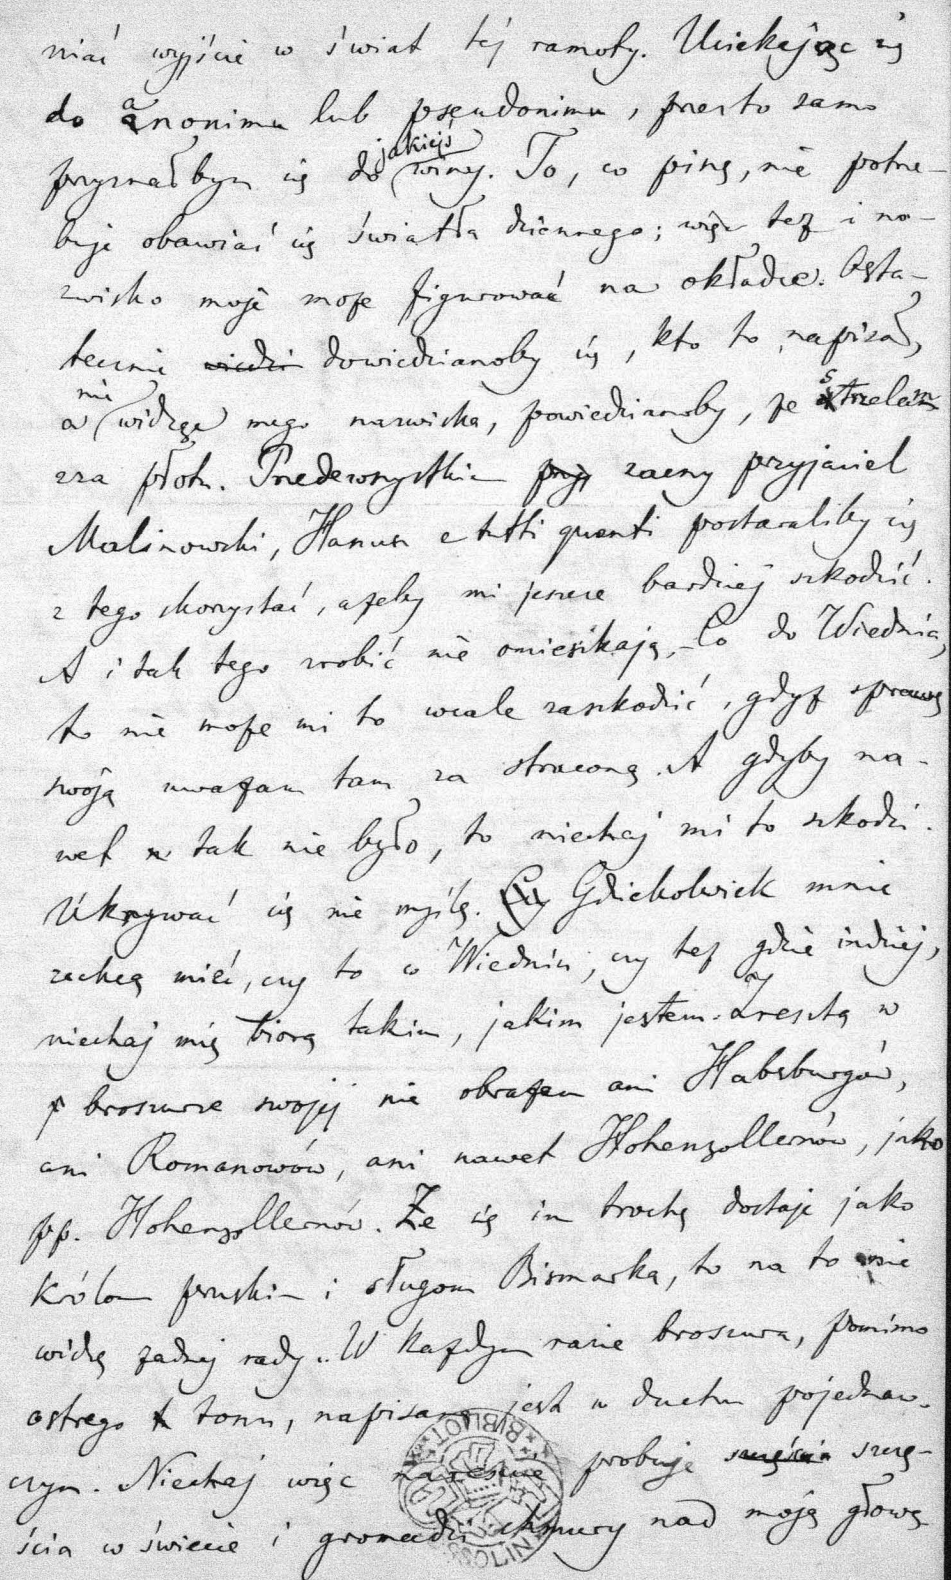 niać wyjście w świat téj ramoty. Uciekając się
do anonimu lub pseudonimu, przez to samo
przyznałbym się do jakiejś winy. To, co piszę, nie potrze-
buje obawiać się światła dziennego; więc też i na-
zwisko moje może figurować na okładce. Osta-
tecznie wiedzi dowiedzianoby się, kto to napisał,
a nie widząc mego nazwiska, powiedzianoby, że strzelam
zza płotu. Przedewszystkiem przyj zacny przyjaciel
Malinowski, Hanusz e tutti quanti postaraliby się
z tego skorzystać, ażeby mi jeszcze bardziej szkodzić.
A i tak tego zrobić nie omieszkają. – Co do Wiednia,
to nie może mi to wcale zaszkodzić, gdyż sprawę
swoją uważam tam za straconą. A gdyby na-
wet n tak nie było, to niechaj mi to szkodzi.
Ukrywać się nie myślę. Czy Gdziekolwiek mnie
zechcą mieć, czy to w Wiedniu, czy też gdzie indziej,
niechaj mię biorą takim, jakim jestem. Zresztą w
broszurze swojej nie obrażam ani Habsburgów,
ani Romanowów, ani nawet Hohenzollernów, jako
pp. Hohenzollernów. Że się im trochę dostaje jako
królom pruskim i sługom Bismarka, to na to nie
widzę żadnej rady. W każdym razie broszura, pomimo
ostrego t tonu, napisana jest w duchu pojednaw-
czym. Niechaj więc nareszcie probuje szczęścia szczę-
ścia w świecie i gromadzi chmury nad moją głową